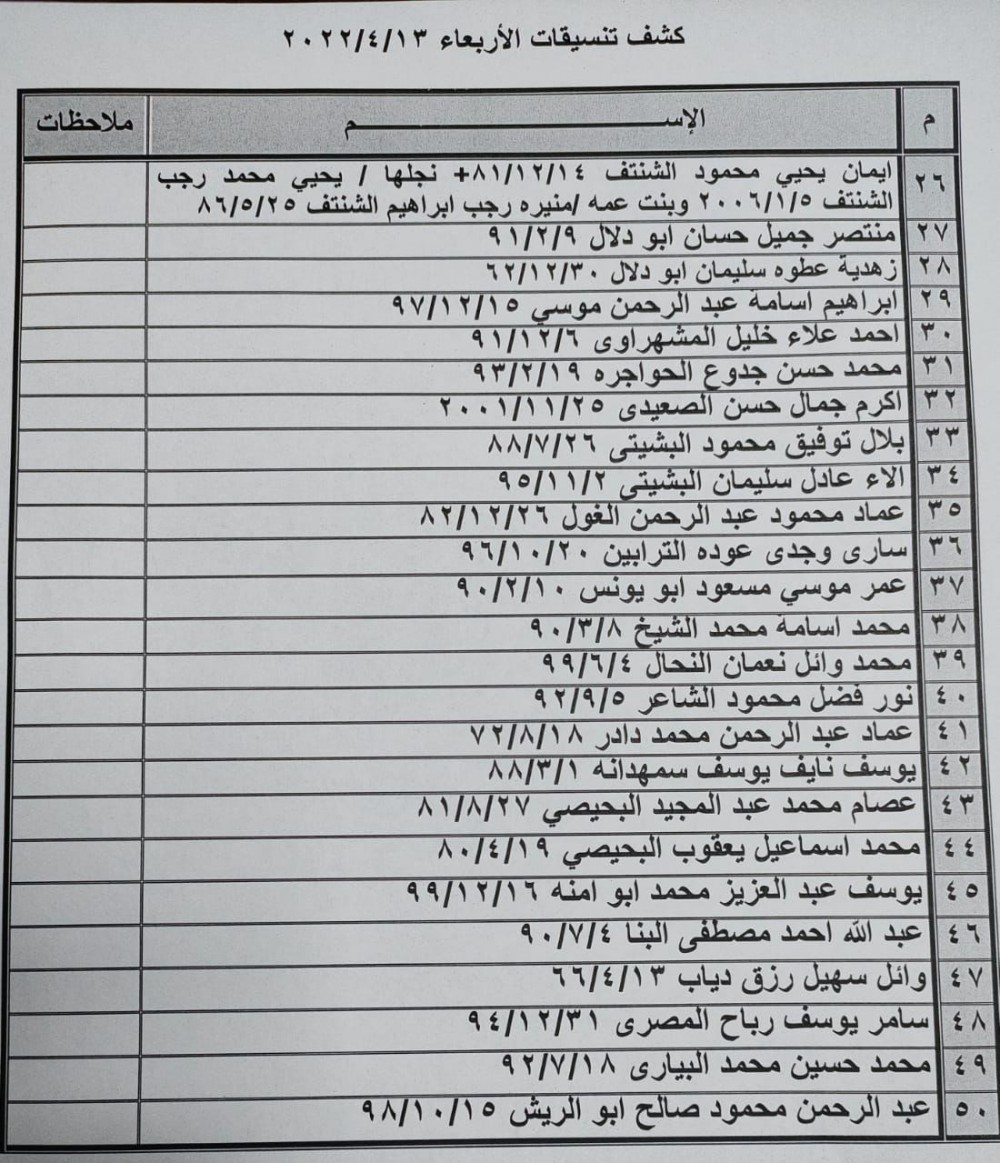 كشف تنسيقات الأربعاء ٢٠٢٢/٤/١٣
م الإســـــــــــم ملاحظات
٢٦ ايمان يحيي محمود الشنتف ٨١/١٢/١٤+ نجلها / يحيي محمد رجب
الشنتف ٢٠٠٦/١/٥ وبنت عمه /منيره رجب ابراهيم الشنتف ٨٦/٥/٢٥
٢٧ منتصر جميل حسان ابو دلال ٩١/٢/٩
٢٨ زهدية عطوه سليمان ابو دلال ٦٢/١٢/٣٠
٢٩ ابراهيم اسامة عبد الرحمن موسي ٩٧/١٢/١٥
٣٠ احمد علاء خليل المشهراوى ٩١/١٢/٦
٣١ محمد حسن جدوع الحواجره ٩٣/٢/١٩
٣٢ اكرم جمال حسن الصعيدى ٢٠٠١/١١/٢٥
٣٣ بلال توفيق محمود البشيتى ٨٨/٧/٢٦
٣٤ الاء عادل سليمان البشيتى ٩٥/١١/٢
٣٥ عماد محمود عبد الرحمن الغول ٨٢/١٢/٢٦
٣٦ سارى وجدى عوده الترابين ٩٦/١٠/٢٠
٣٧ عمر موسي مسعود ابو يونس ٩٠/٢/١٠
٣٨ محمد اسامة محمد الشيخ ٩٠/٣/٨
٣٩ محمد وائل نعمان النحال ٩٩/٦/٤
٤٠ نور فضل محمود الشاعر ٩٢/٩/٥
٤١ عماد عبد الرحمن محمد دادر ٧٢/٨/١٨
٤٢ يوسف نايف يوسف سمهدانه ٨٨/٣/١
٤٣ عصام محمد عبد المجيد البحيصي ٨١/٨/٢٧
٤٤ محمد اسماعيل يعقوب البحيصي ٨٠/٤/١٩
٤٥ يوسف عبد العزيز محمد ابو امنه ٩٩/١٢/١٦
٤٦ عبد الله احمد مصطفى البنا ٩٠/٧/٤
٤٧ وائل سهيل رزق دياب ٦٦/٤/١٣
٤٨ سامر يوسف رباح المصرى ٩٤/١٢/٣١
٤٩ محمد حسين محمد البيارى ٩٢/٧/١٨
٥٠ عبد الرحمن محمود صالح ابو الريش ٩٨/١٠/١٥